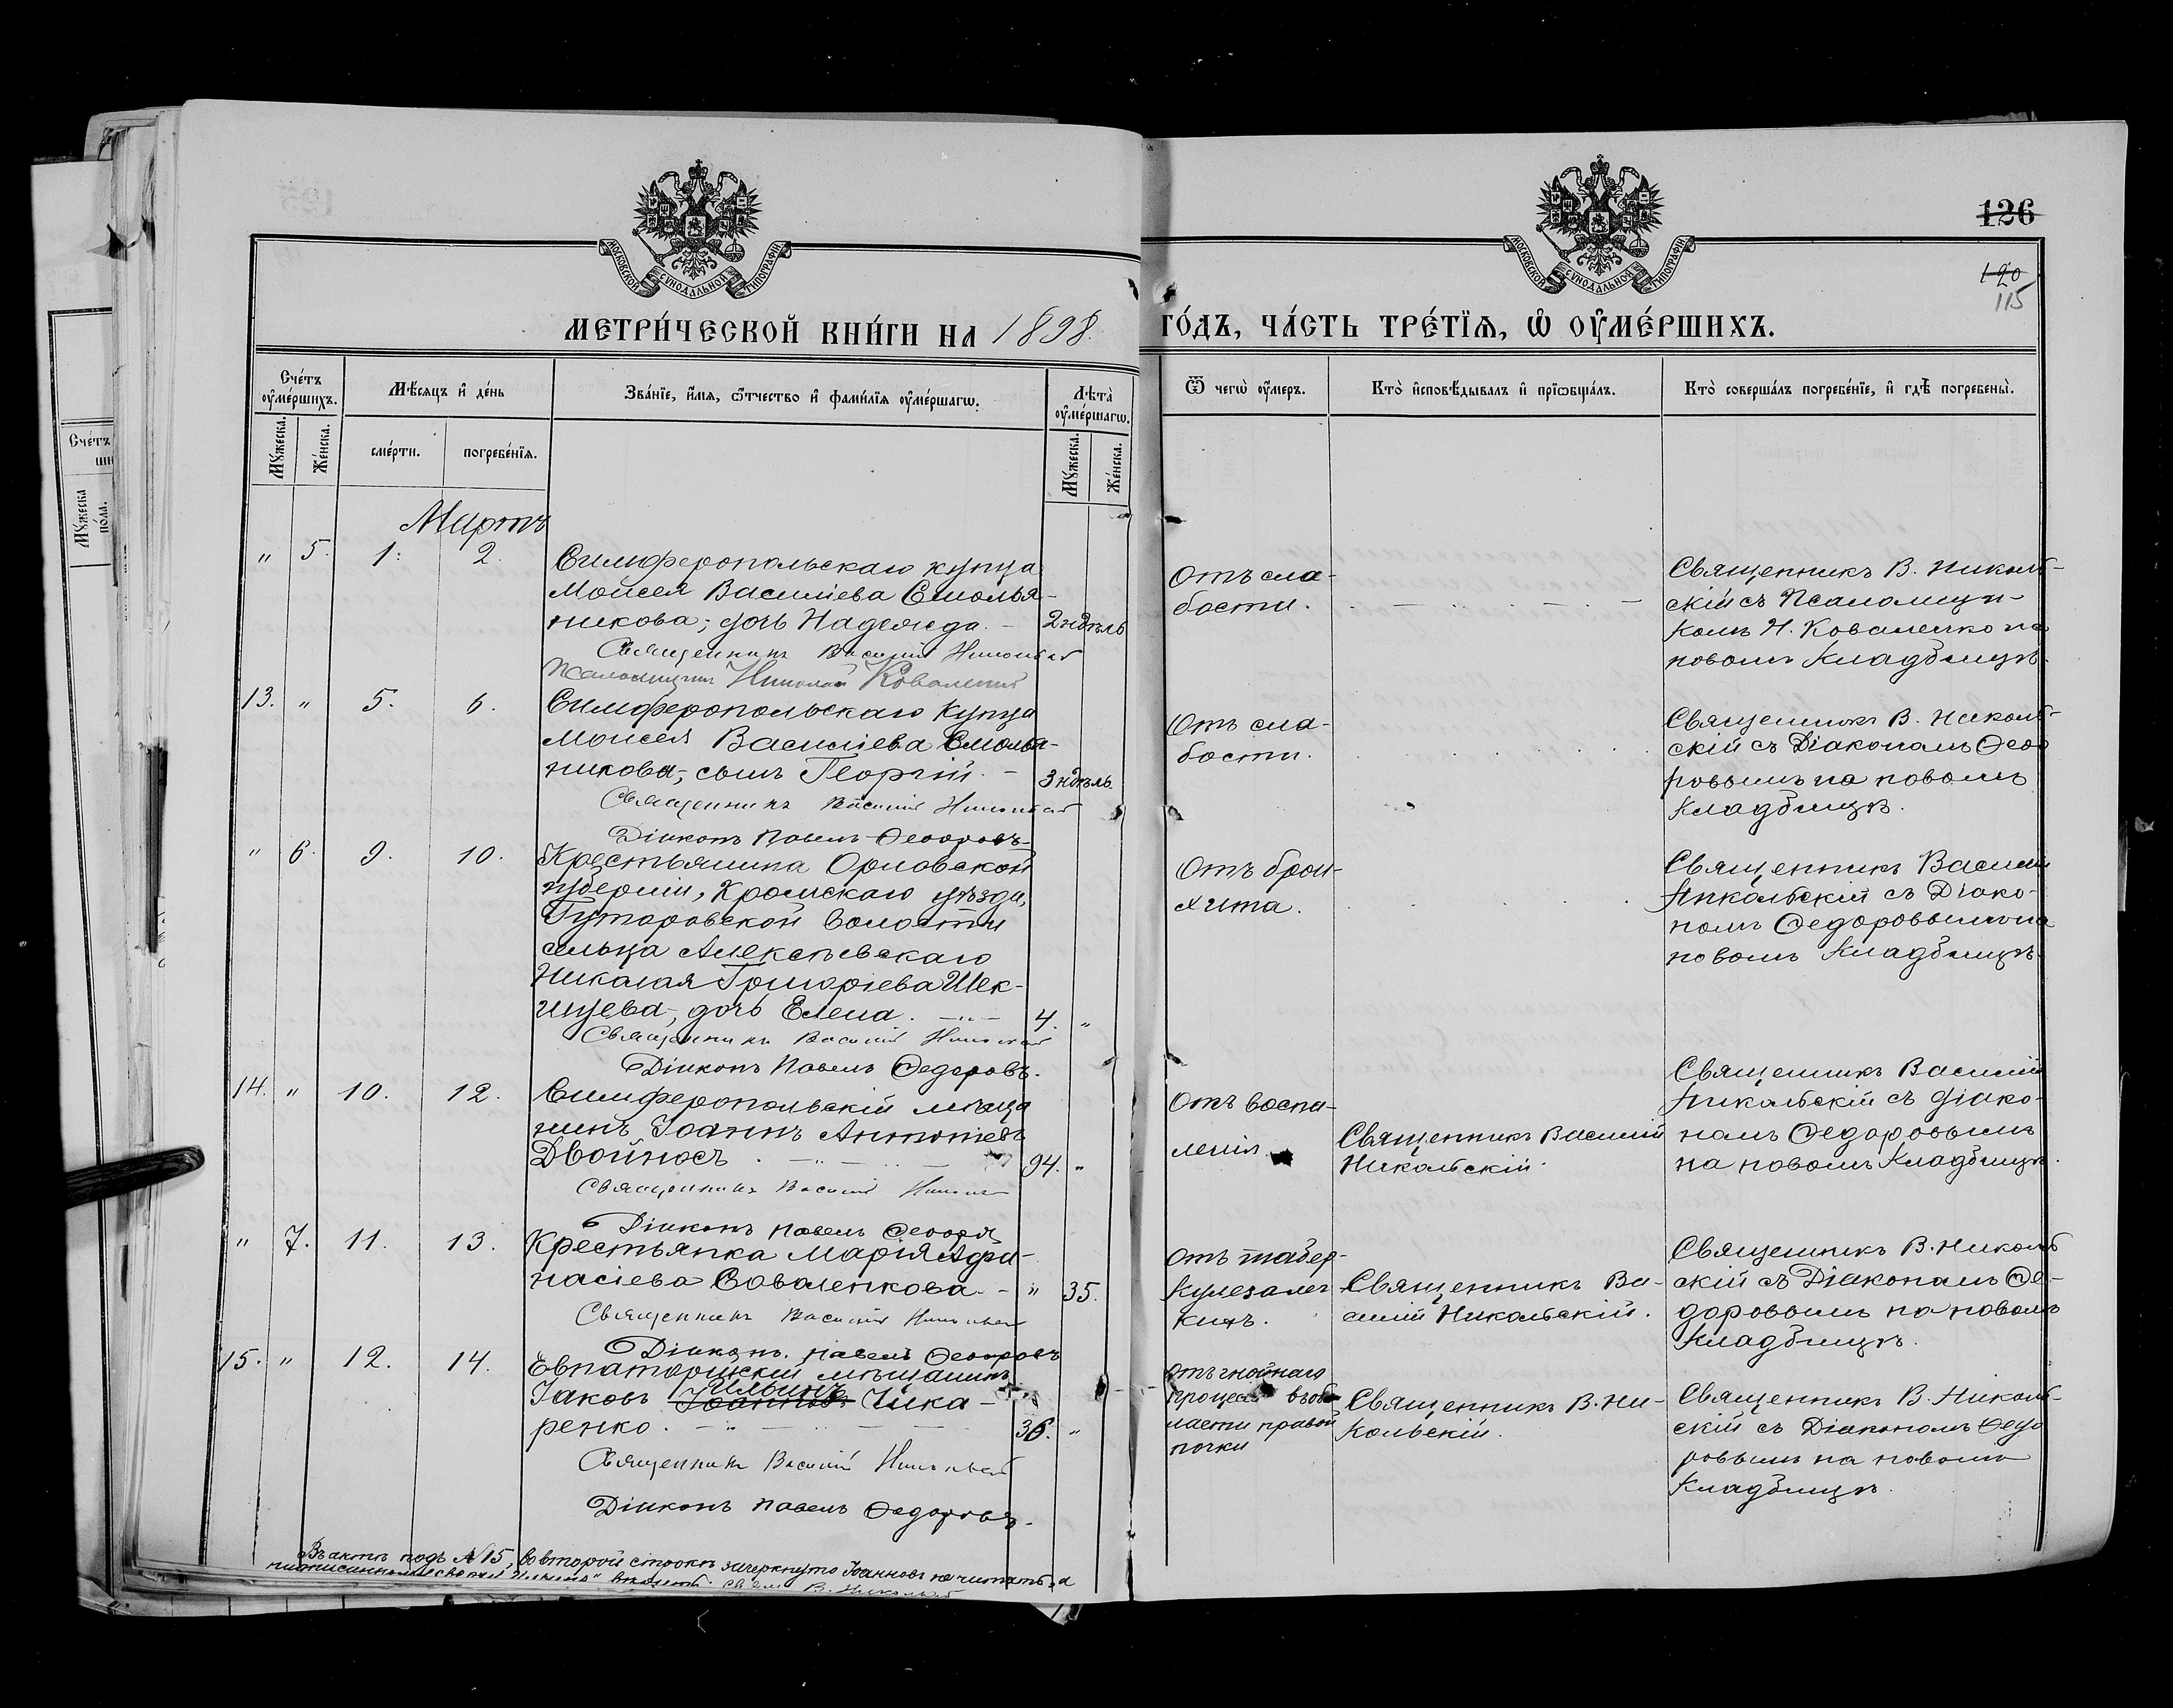 126
120
115
МОСКОВСКОЙ СѴНОДАЛЬНОЙ ТИПОГРАФІИ
МОСКОВСКОЙ СѴНОДАЛЬНОЙ ТИПОГРАФІИ
МЕТРИ́ЧЕСКОЙ КНИ́ГИ НА 1898. ГО́ДЪ, ЧА́СТЬ ТРЕ́ТЇѦ, Ѡ҆ ОУ҆МЕ́РШИХЪ.
Сче́тъ
оу҆ме́ршихъ.
Мꙋ́жеска.
Же́нска.
Мѣ́сѧцъ и҆ де́нь
сме́рти.
погребе́нїѧ.
Зва́нїе, и҆́мѧ, ѻ҆́тчество и҆ фами́лїѧ оу҆ме́ршагѡ.
Лѣ̑та
оу҆ме́ршагѡ.
Мꙋ́жеска.
Же́нска.
Ѿ чегѡ̀ оу҆́меръ.
Кто̀ и҆сповѣ́дывалъ и҆ прїѡбща́лъ.
Кто̀ соверша́лъ погребе́нїе, и҆ гдѣ̀ погребены̀.
Сче́тъ
Мꙋ́жеска
по́ла.
Мартъ
" 5. 1. 2.
Симферопольскаго купца
Моисея Василіева Смолья-
никова, дочь Надежда. –
2 ндѣль
Священникъ Василій Никольскій
Псаломщикъ Николай Коваленко
Отъ сла-
бости.
Священникъ В. Николь-
скій съ Псаломщи-
комъ Н. Коваленко на
новомъ кладбищѣ.
13. " 5. 6.
Симферопольскаго купца
Моисея Василіева Смолья-
никова, сынъ Георгій. –
3 ндѣль.
Священникъ Василій Никольскій
Діаконъ Павелъ Ѳеодоровъ
Отъ сла-
бости.
Священникъ В. Николь-
скій съ Діакономъ Ѳедо
ровымъ на новомъ
кладбищѣ.
" 6. 9. 10.
Крестьянина Орловской
губерніи, Кромскаго уѣзда,
Гуторовской волости
сельца Алексѣевскаго
Николая Григоріева Шек-
шуева, дочь Елена.
4. "
Священникъ Василій Никольскій
Діаконъ Павелъ Ѳедоровъ.
Отъ брон-
хита.
Священникъ Василій
Никольскій съ Діако-
номъ Ѳедоровымъ на
новомъ кладбищѣ.
14. " 10. 12.
Симферопольскій мѣща
нинъ Іоаннъ Антоніевъ
Двойносъ.
94. "
Священникъ Василій Никольскій
Діаконъ Павелъ Ѳеодоровъ
Отъ воспа-
ленія.
Священникъ Василій
Никольскій.
Священникъ Василій
Никольскій съ діако-
номъ Ѳедоровымъ
на новомъ кладбищѣ.
" 7. 11. 13.
Крестьянка Марія Аѳа-
насіева Соваленкова. –
" 35.
Священникъ Василій Никольскій
Діаконъ Павелъ Ѳеодоровъ
Отъ тубер-
кулеза лег
кихъ.
Священникъ Ва-
силій Никольскій.
Священникъ В. Николь
скій съ Діакономъ Ѳе-
доровымъ на новомъ
кладбищѣ.
15. " 12. 14.
Евпаторійскій мѣщанинъ
Ильинъ
Іаковъ Іоанновъ Чика-
ренко.
36. "
Священникъ Василій Никольскій
Діаконъ Павелъ Ѳедоровъ.
Отъ гнойнаго
процесса въ об
ласти правой
почки
Священникъ В. Ни-
кольскій.
Священникъ В. Николь-
скій съ Діакономъ Ѳедо
ровымъ на новомъ
кладбищѣ.
Въ актѣ подъ №15, во второй строкѣ зачеркнуто Іоанновъ не читать, а
"Ильинъ" Свящ. В. Никольскій